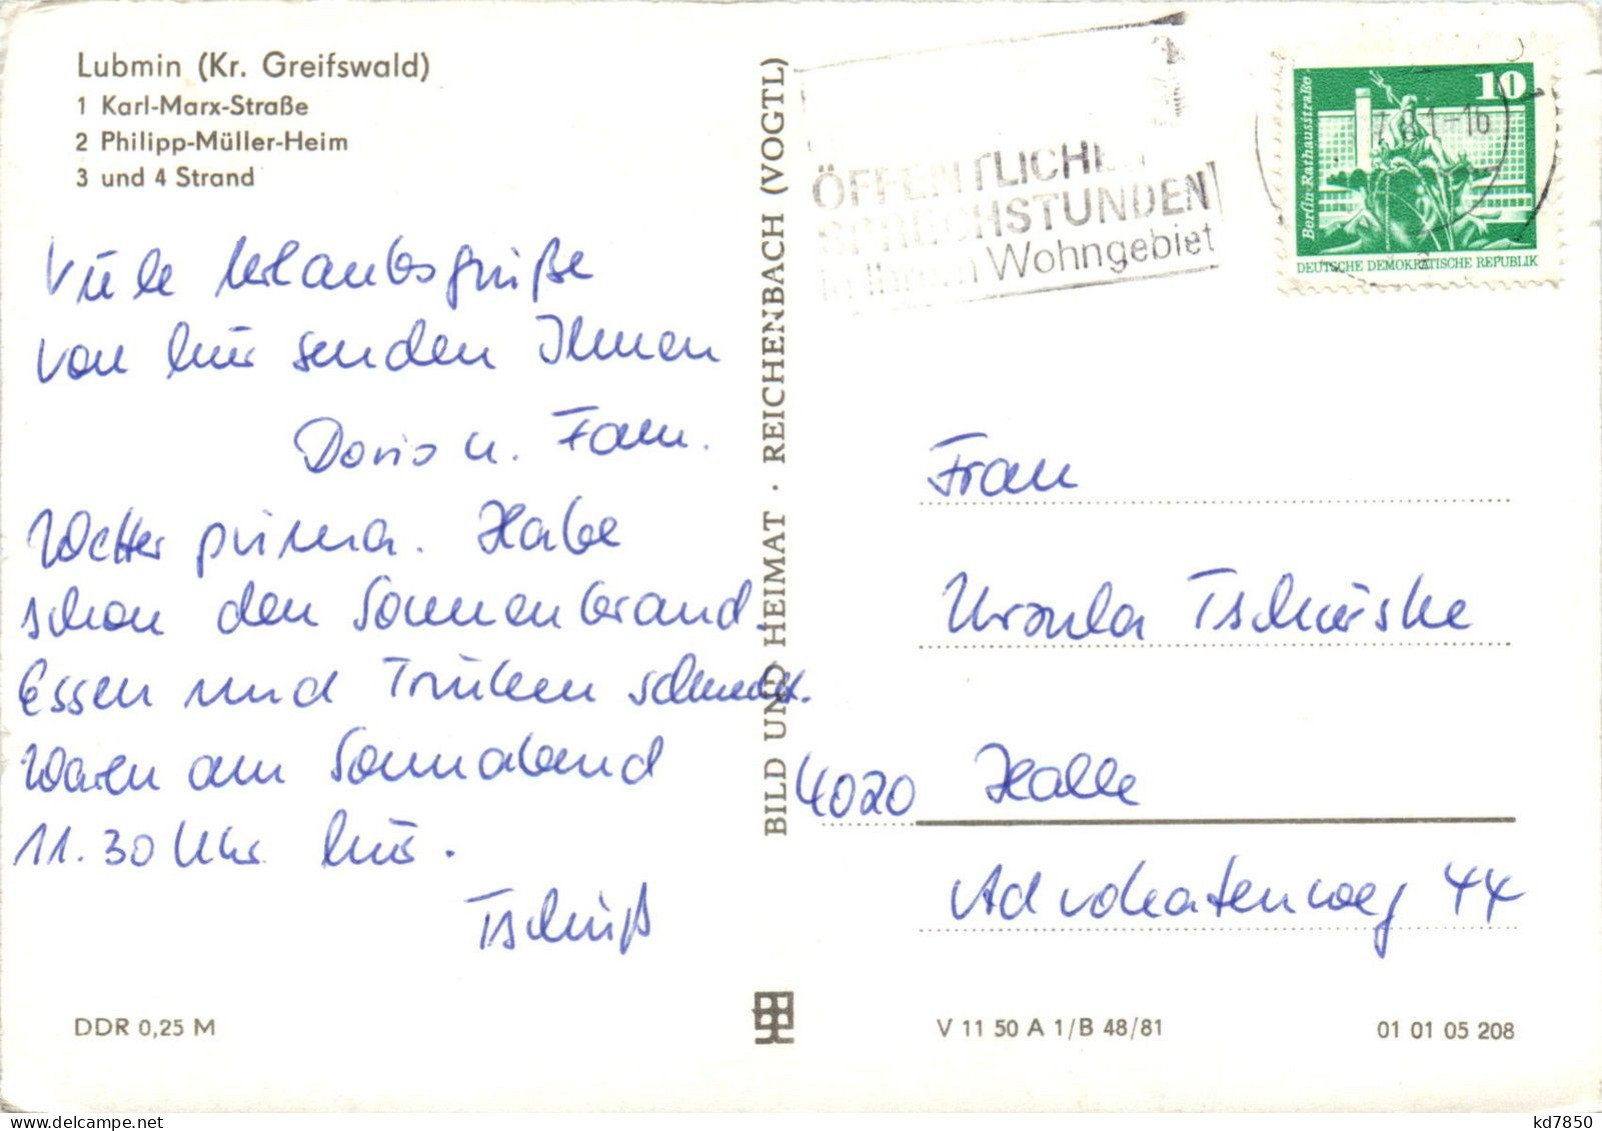 Lubmin (Kr. Greifswald)
1 Karl-Marx-Straße
2 Philipp-Müller-Heim
3 und 4 Strand
Viele Urlaubsgrüße
von hier senden Ihnen
Doris u. Fam.
Wetter prima. Habe
schon den Sonnenbrand.
Essen und Trinken schmeckt.
Waren am Sonnabend
11.30 Uhr hier.
Tschüß
DDR 0,25 M
BILD UND HEIMAT · REICHENBACH (VOGTL)
ÖFFENTLICHE
SPRECHSTUNDEN
in Ihrem Wohngebiet
10
Berlin-Rathausstraße
DEUTSCHE DEMOKRATISCHE REPUBLIK
Frau
Ursula Tschierske
4020 Halle
Advokatenweg 44
V 11 50 A 1/B 48/81
01 01 05 208
kd7850
www.delcampe.net